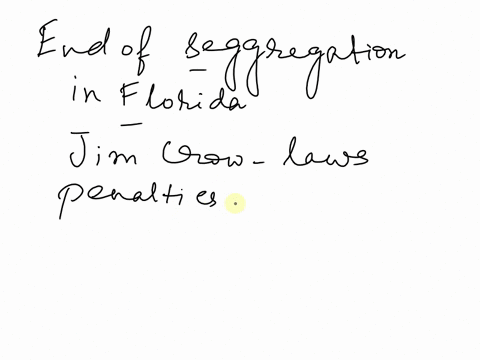 End of seggregation
in Florida
Jim Crow - laws
penalties.